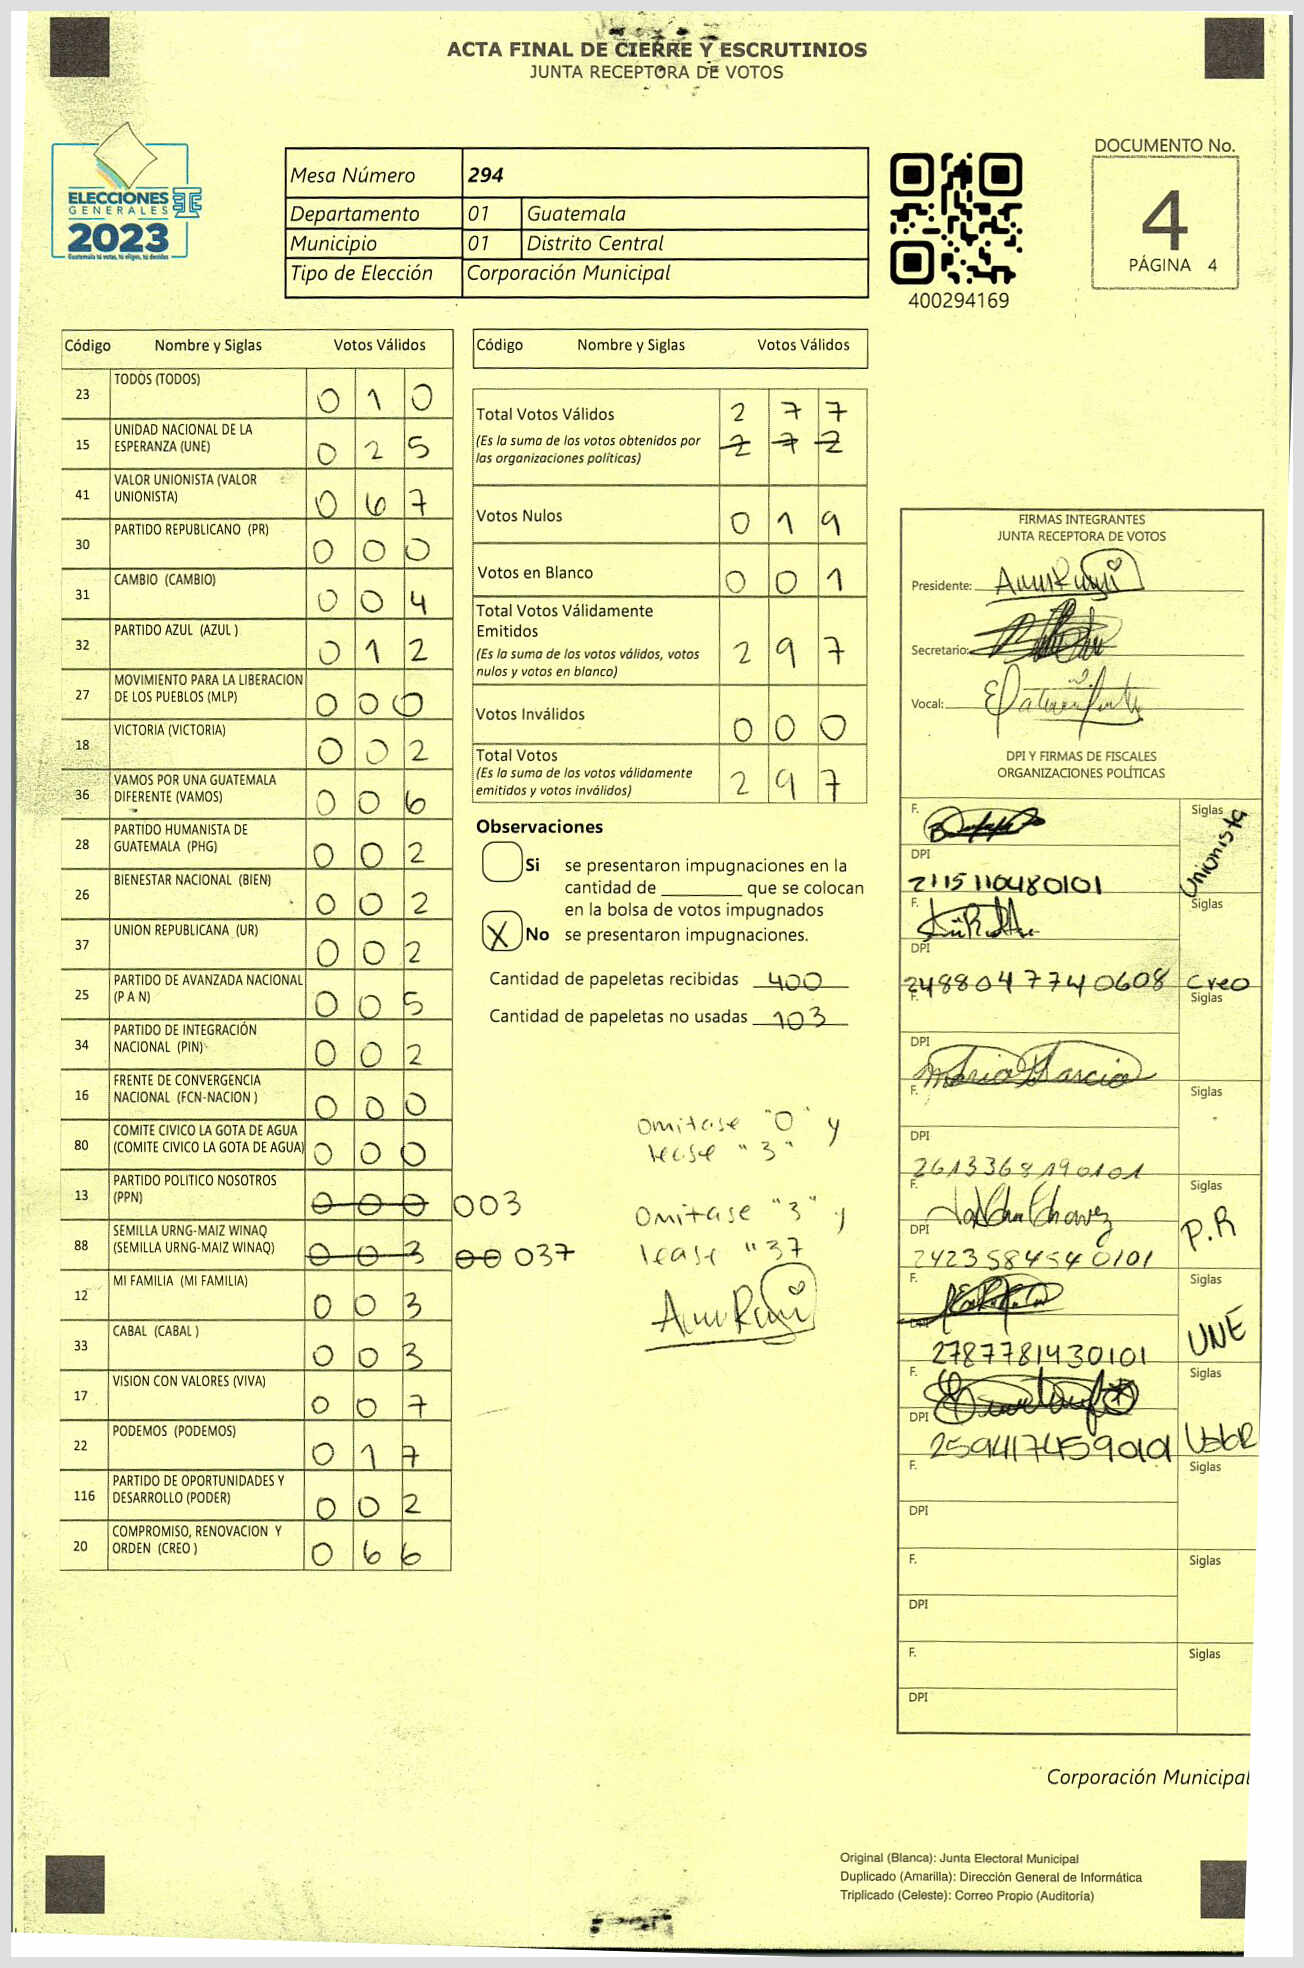 ACTA FINAL DE CIERRE Y ESCRUTINIOS
JUNTA RECEPTORA DE VOTOS
ELECCIONES
GENERALES
2023
Guatemala tú votas, tú eliges, tú decides
Mesa Número 294
Departamento 01 Guatemala
Municipio 01 Distrito Central
Tipo de Elección Corporación Municipal
400294169
DOCUMENTO No.
4
PÁGINA 4
Código Nombre y Siglas Votos Válidos
23 TODOS (TODOS) 0 1 0
15 UNIDAD NACIONAL DE LA ESPERANZA (UNE) 0 2 5
41 VALOR UNIONISTA (VALOR UNIONISTA) 0 6 7
30 PARTIDO REPUBLICANO (PR) 0 0 0
31 CAMBIO (CAMBIO) 0 0 4
32 PARTIDO AZUL (AZUL ) 0 1 2
27 MOVIMIENTO PARA LA LIBERACION DE LOS PUEBLOS (MLP) 0 0 0
18 VICTORIA (VICTORIA) 0 0 2
36 VAMOS POR UNA GUATEMALA DIFERENTE (VAMOS) 0 0 6
28 PARTIDO HUMANISTA DE GUATEMALA (PHG) 0 0 2
26 BIENESTAR NACIONAL (BIEN) 0 0 2
37 UNION REPUBLICANA (UR) 0 0 2
25 PARTIDO DE AVANZADA NACIONAL (P A N) 0 0 5
34 PARTIDO DE INTEGRACIÓN NACIONAL (PIN) 0 0 2
16 FRENTE DE CONVERGENCIA NACIONAL (FCN-NACION ) 0 0 0
80 COMITE CIVICO LA GOTA DE AGUA (COMITE CIVICO LA GOTA DE AGUA) 0 0 0
13 PARTIDO POLITICO NOSOTROS (PPN) 0 0 0 003
88 SEMILLA URNG-MAIZ WINAQ (SEMILLA URNG-MAIZ WINAQ) 0 0 3 00 037
12 MI FAMILIA (MI FAMILIA) 0 0 3
33 CABAL (CABAL ) 0 0 3
17 VISION CON VALORES (VIVA) 0 0 7
22 PODEMOS (PODEMOS) 0 1 7
116 PARTIDO DE OPORTUNIDADES Y DESARROLLO (PODER) 0 0 2
20 COMPROMISO, RENOVACION Y ORDEN (CREO ) 0 6 6
Código Nombre y Siglas Votos Válidos
Total Votos Válidos 2 7 7
(Es la suma de los votos obtenidos por 2 7 2
las organizaciones políticas)
Votos Nulos 0 1 9
Votos en Blanco 0 0 1
Total Votos Válidamente
Emitidos
(Es la suma de los votos válidos, votos 2 9 7
nulos y votos en blanco)
Votos Inválidos 0 0 0
Total Votos
(Es la suma de los votos válidamente 2 9 7
emitidos y votos inválidos)
Observaciones
Si se presentaron impugnaciones en la
cantidad de ________ que se colocan
en la bolsa de votos impugnados
X No se presentaron impugnaciones.
Cantidad de papeletas recibidas 400
Cantidad de papeletas no usadas 103
omitase "0" y
lease "3"
Omitase "3" y
lease "37
FIRMAS INTEGRANTES
JUNTA RECEPTORA DE VOTOS
Presidente:
Secretario:
Vocal:
DPI Y FIRMAS DE FISCALES
ORGANIZACIONES POLÍTICAS
F. Siglas
Unionista
DPI
2115110480101
F. Siglas
DPI
2488047740608 Creo
F. Siglas
DPI
Maria Garcia
F. Siglas
DPI
2613368190101
F. Siglas
Chavez P.R
DPI
2423584540101
F. Siglas
DPI
2787781430101 UNE
F. Siglas
DPI
2594174590101
F. Siglas
DPI
F. Siglas
DPI
F. Siglas
DPI
Corporación Municipal
Original (Blanca): Junta Electoral Municipal
Duplicado (Amarilla): Dirección General de Informática
Triplicado (Celeste): Correo Propio (Auditoría)